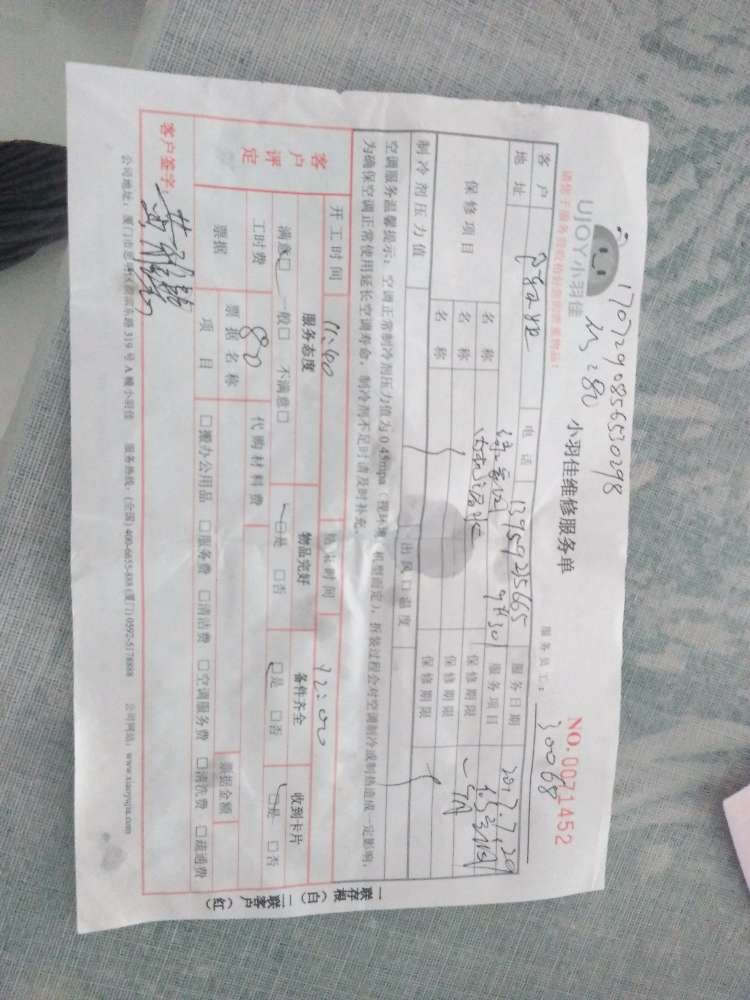 1707290856530298
UJOY小羽佳
小羽佳维修服务单
NO.0071452
服务员工:
30068
客户
电话
13959235665
服务日期
2017.7.29
地址
服务项目
保修项目
名称
保修期限
名称
保修期限
名称
保修期限
制冷剂压力值
出风口温度
空调服务温馨提示:空调正常制冷剂压力值为0.45mpa(视环境、机型而定),拆装过程会对空调制冷或制热造成一定影响,
为确保空调正常使用延长空调寿命,制冷剂不足时请及时补充。
开工时间
11:40
结束时间
12:00
客户评定
服务态度
物品完好
备件齐全
收到卡片
满意□ 一般□ 不满意□
□是 □否
□是 □否
□是 □否
工时费
80
代购材料费
票据
票据名称
票据金额
项目
□搬办公用品 □服务费 □清洁费 □空调服务费 □清洗费 □疏通费
客户签字:
319号A幢小羽佳 服务热线:(全国)400-6655-888 (厦门)0592-5178888 公司网站:www.xiaoyujia.com
一联存根(白)
二联客户(红)